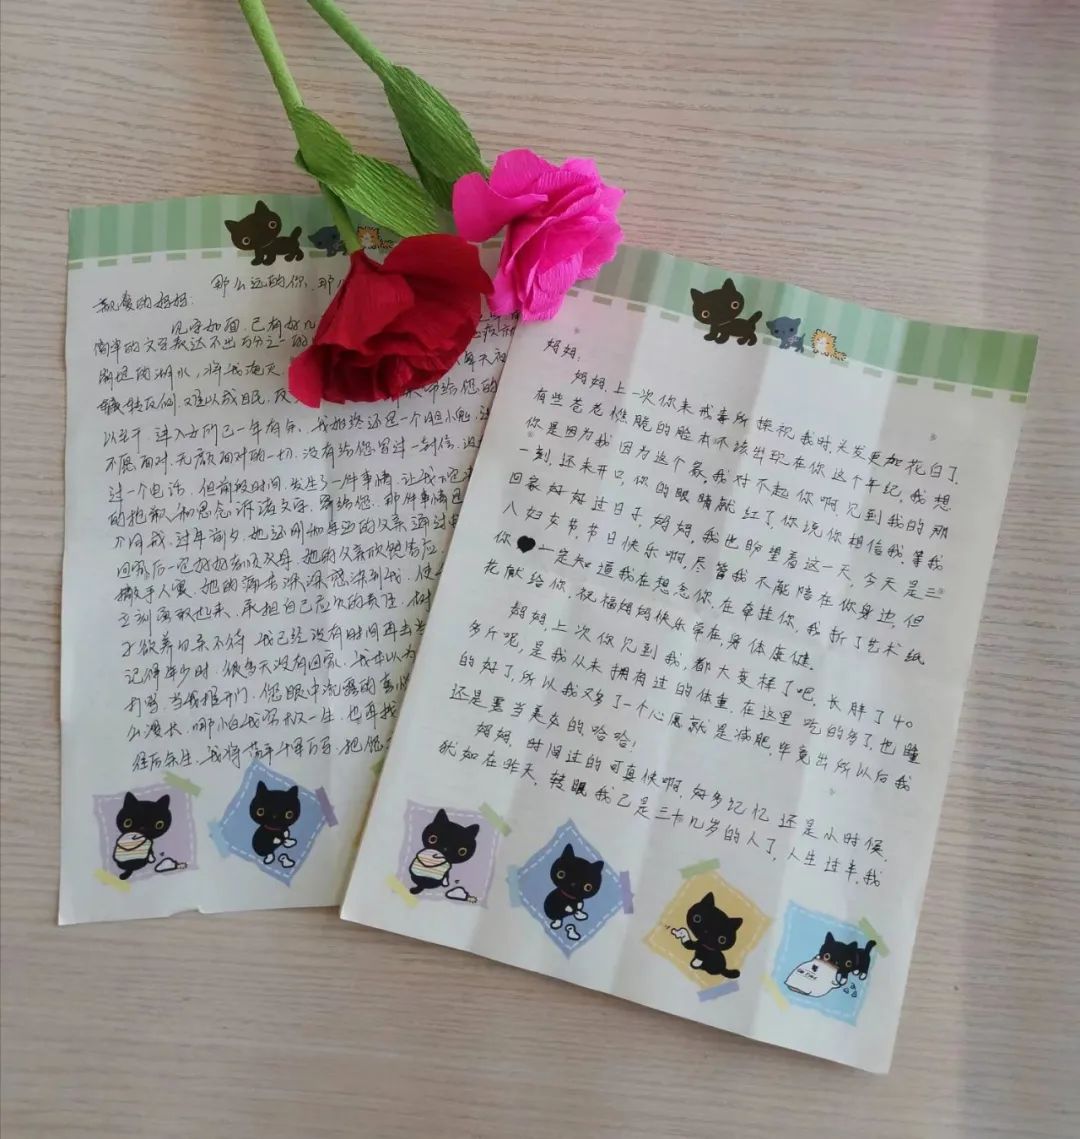 那么远的你、那
亲爱的妈妈:
见字如面,已有好几
简单的文字表达不出万分之一的
潮退的湖水,将我淹灭
辗转反侧,难以成眠,
以至于,进入女所已一年有余,我始终还是一个胆小鬼,
不愿面对,无颜面对的一切,没有给您写过一封信,没
过一个电话,但前段时间,发生了一件事情,让我下定
的抱歉和思念诉诸文字,寄给您。那件事情是
个月戒,过年前夕,她还刚和年迈的父亲通过电
回家后一定好好孝顺父母,她的父亲欣慰答应,
撒手人寰,她的痛苦深深感染到我,使
立刻离散出来,承担自己应尽的责任,树
子欲养而亲不待,我已经没有时间再去当
记得年少时,很多天没有回家,我本以为
打骂,当我推开门,您眼中流露的
么漫长,哪怕我穷极一生,也再找
往后余生,我将
妈妈:
妈妈,上一次你来戒毒所探视我时,头发更加花白了,
有些苍老憔脆的脸本不该出现在你这个年纪,我想
你是因为我因为这个家,我对不起你啊,见到我的那
一刻,还未开口,你的眼睛就红了,你说你相信我,等我
回家好好过日子,妈妈,我也盼望着这一天,今天是三
八妇女节,节日快乐啊,尽管我不能陪在你身边,但
你一定知道我在想念你,在牵挂你,我折了艺术纸
花献给你,祝福妈妈快乐常在,身体康健。
妈妈,上次你见到我,都大变样了吧,长胖了40
多斤呢,是我从来拥有过的体重,在这里吃的多了,也睡
的好了,所以我又多了一个心愿就是减肥,毕竟出所以后我
还是要当美女的,哈哈!
妈妈,时间过的可真快啊,好多记忆还是小时候,
犹如在昨天,转眼我已是三十几岁的人了,人生过半,我